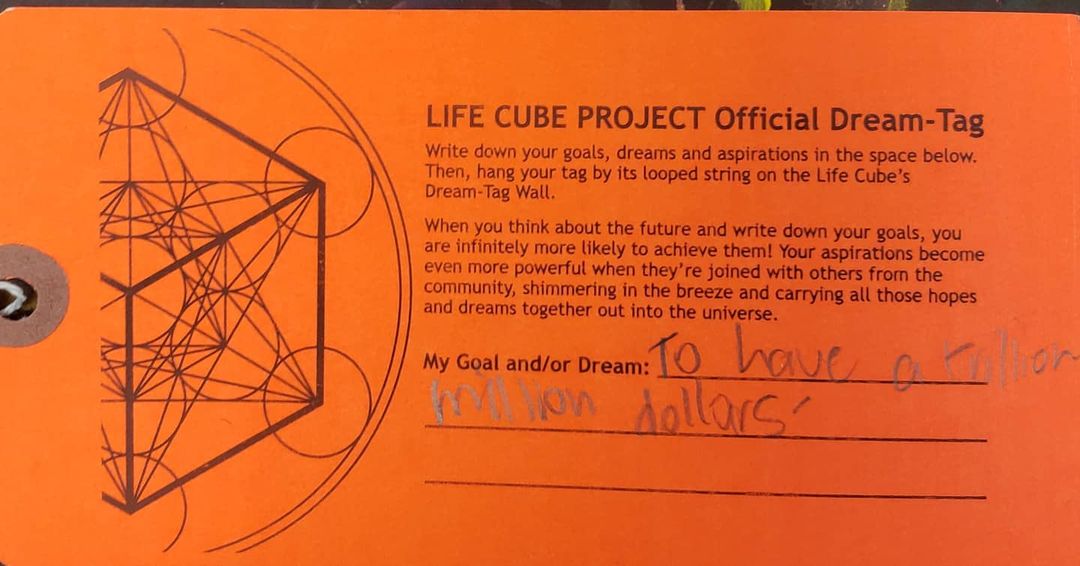 LIFE CUBE PROJECT Official Dream-Tag
Write down your goals, dreams and aspirations in the space below.
Then, hang your tag by its looped string on the Life Cube's
Dream-Tag Wall.
When you think about the future and write down your goals, you
are infinitely more likely to achieve them! Your aspirations become
even more powerful when they're joined with others from the
community, shimmering in the breeze and carrying all those hopes
and dreams together out into the universe.
My Goal and/or Dream: To have a trillion
million dollars